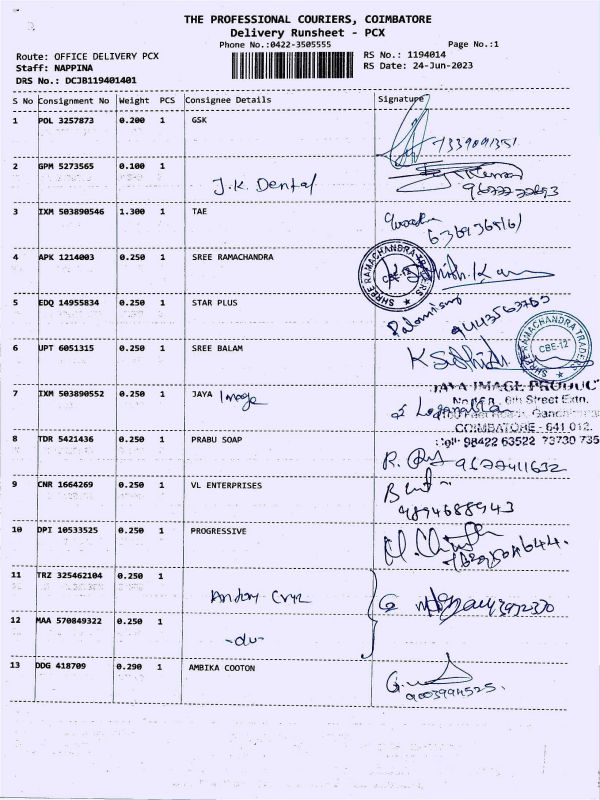 THE PROFESSIONAL COURIERS, COIMBATORE
Delivery Runsheet - PCX
Phone No.:0422-3505555 Page No.:1
Route: OFFICE DELIVERY PCX RS No.: 1194014
Staff: NAPPINA RS Date: 24-Jun-2023
DRS No.: DCJB119401401
S No Consignment No Weight PCS Consignee Details Signature
1 POL 3257873 0.200 1 GSK
7339091351
2 GPM 5273565 0.100 1
J.K. Dental
3 IXM 503890546 1.300 1 TAE
4 APK 1214003 0.250 1 SREE RAMACHANDRA
SHREE RAMACHANDRA TRADERS
CBE-12
5 EDQ 14955834 0.250 1 STAR PLUS
6 UPT 6051315 0.250 1 SREE BALAM
SHREE RAMACHANDRA TRADERS
CBE-12
7 IXM 503890552 0.250 1 JAYA Image
JAYA IMAGE PRODUC
6th Street Extn.
COIMBATORE - 641 012.
Cell: 98422 63522 73730 735
8 TDR 5421436 0.250 1 PRABU SOAP
9677411632
9 CNR 1664269 0.250 1 VL ENTERPRISES
9894688943
10 DPI 10533525 0.250 1 PROGRESSIVE
11 TRZ 325462104 0.250 1
12 MAA 570849322 0.250 1
-do-
13 DDG 418709 0.290 1 AMBIKA COOTON
9003994525.